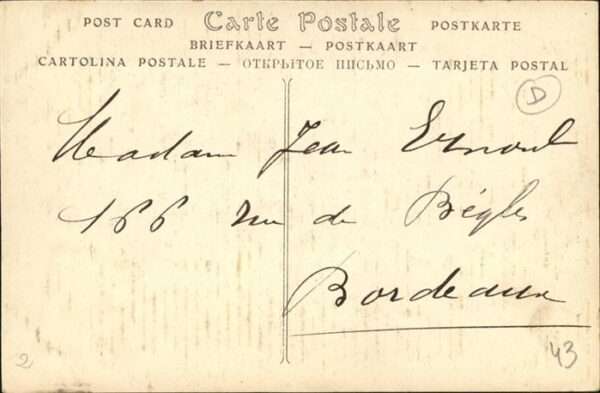 POST CARD Carte Postale POSTKARTE
BRIEFKAART — POSTKAART
CARTOLINA POSTALE — ОТКРЫТОЕ ПИСЬМО — TARJETA POSTAL
D
Madame Jean Ernoult
166 rue de Bègles
Bordeaux
2
43